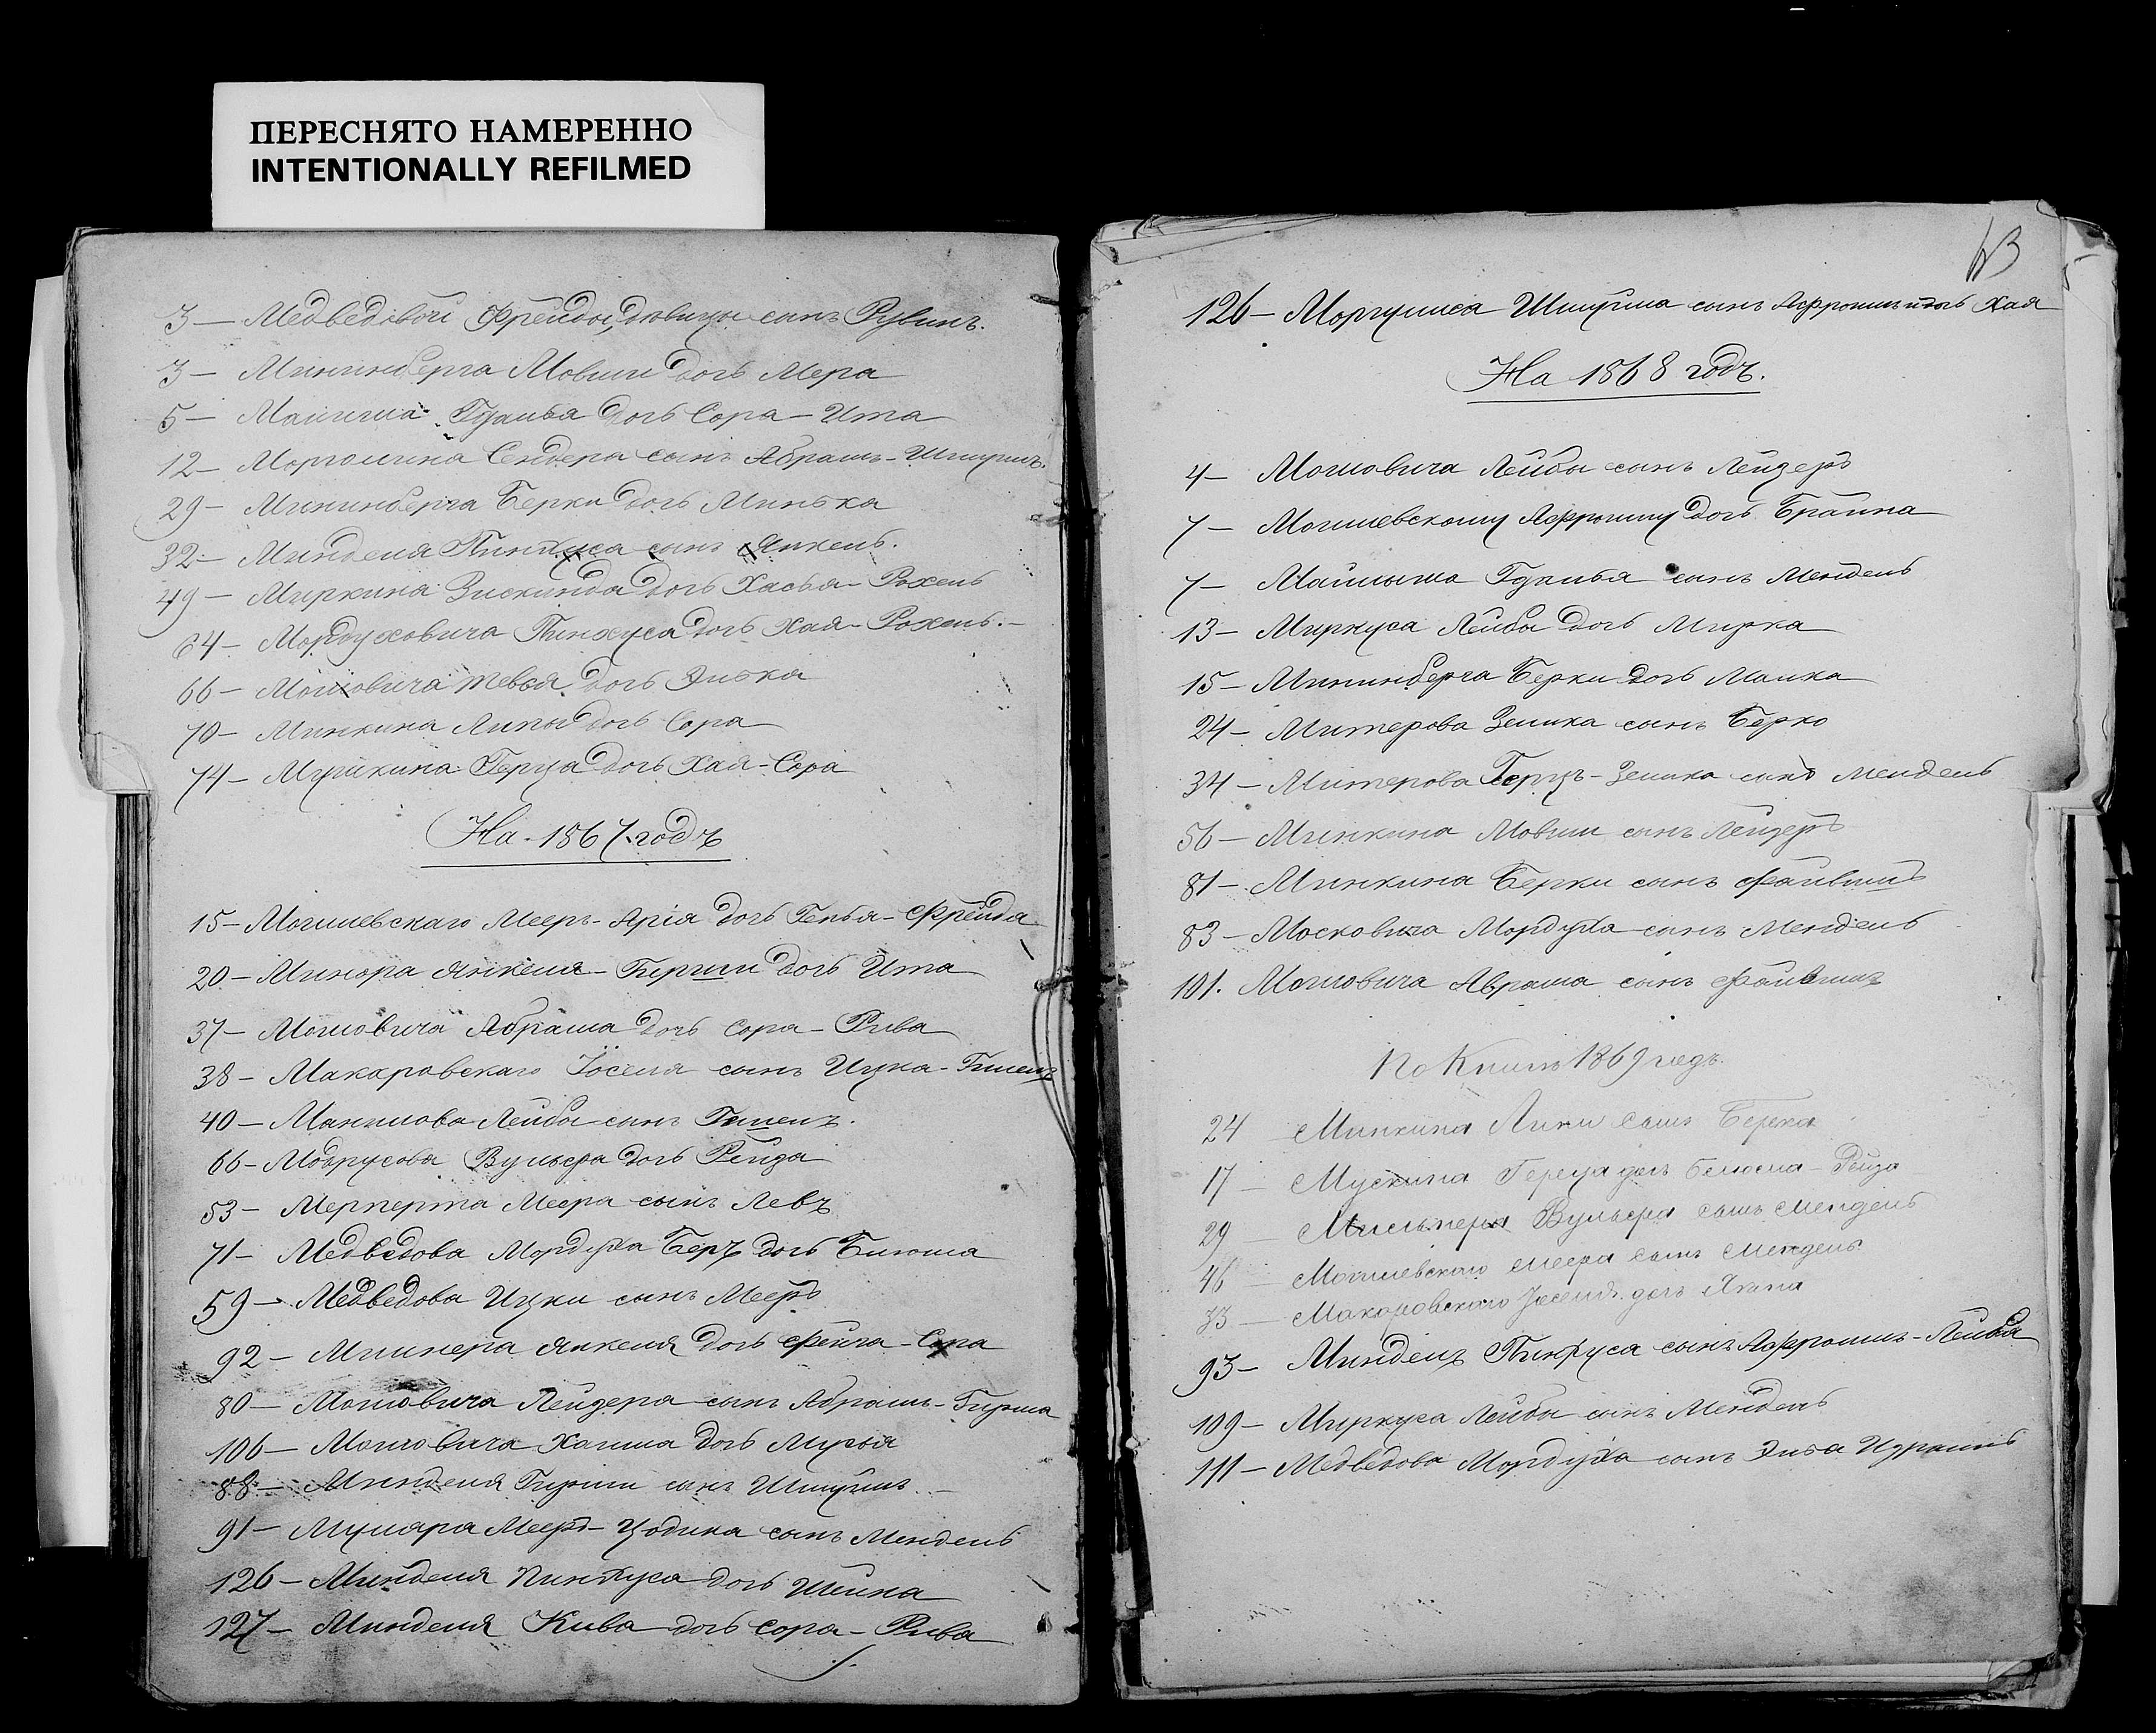 ПЕРЕСНЯТО НАМЕРЕННО
INTENTIONALLY REFILMED
3 — Медведовой Фрейды, девицы сынъ Рувинъ.
3 — Мининберга Мовши дочь Мера
5 — Гдалья дочь Сора - Ита
12 — Марголина Сендера сынъ Абрамъ - Шмуилъ.
29 — Мининберга Берки дочь Минька
32 — Минделя Пинхуса сынъ Янкель.
49 — Миркина Зискинда дочь Хасья - Рохель
64 — Мордуховича Пинхуса дочь Хая - Рохель. -
66 — Мошовича Тевья дочь Элька
70 — Минкина Липы дочь Сора
74 — Мушкина Герца дочь Хая - Сора
На 1867 годъ
15 — Могилевскаго Мееръ - Арія дочь Генья - Фрейда
20 — Минора Янкеля - Гирши дочь Ита
37 — Мошовича Абрама дочь Сора - Рива
38 — Макаровскаго Іоселя сынъ Ицка - Гилель
40 — Лейбы сынъ
66 — Вульфа дочь Рейза
53 — Мерперта Меера сынъ Левъ
71 — Медведова Мордуха Беръ дочь Блюма
59 — Медведова Ицки сынъ Мееръ
92 — Янкеля дочь Фейга - Сора
80 — Мошовича Лейзера сынъ Абрамъ - Гирша
106 — Мошовича Хаима дочь Мусья
88 — Минделя Гирши сынъ Шмуилъ. -
91 — Муляра Мееръ - Цодика сынъ Мендель
126 — Минделя Пинхуса дочь Шейна
127 — Минделя Кива дочь Сора - Рива
43
126 — Моргулиса Шмуйла сынъ Афроимъ и дочь Хая
На 1868 годъ.
4 — Мошовича Лейбы сынъ Лейзеръ
7 — Могилевскому Афроиму дочь Брайна
7 — Гдалья сынъ Мендель
13 — Меркуса Лейбы дочь Мирка
15 — Мининберга Берки дочь Малка
24 — Митерова Зелика сынъ Берко
34 — Митерова Герцъ - Зелика сынъ Мендель
56 — Минкина Мовши сынъ Лейзеръ
81 — Минкина Берки сынъ Файвишъ
83 — Московича Мордуха сынъ Мендель
101. Мошовича Абрама сынъ Файвишъ
По Книгѣ 1869 года.
24 Минкина сынъ Берка
17 — Мускина Герца дочь Блюма - Рейза
29 — Вульфа сынъ Мендель
46 — Могилевскаго Меера сынъ Мендель
33 — Макаровскаго Іоселя дочь Яхна
93 — Миндель Пинхуса сынъ Афроимъ - Лейба
109 — Меркуса Лейбы сынъ Мендель
111 — Медведова Мордуха сынъ Элья Израиль